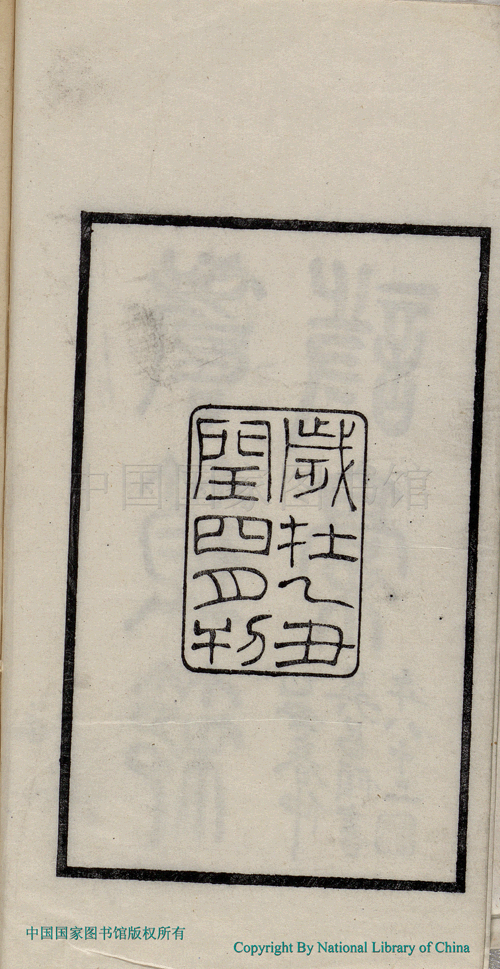 歲在乙丑
閏四月刊
中国国家图书馆
中国国家图书馆版权所有
Copyright By National Library of China